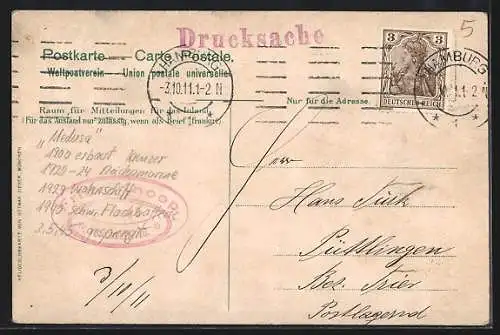 Drucksache
5
Postkarte Carte Postale.
Weltpostverein - Union postale universelle
HAMBURG
-3.10.11.1-2 N
* 1 *
3 3
DEUTSCHES REICH
HAMBURG
11.1-2 N
* 1 *
Nur für die Adresse.
Raum für Mitteilungen für das Inland.
(Für das Ausland nur zulässig, wenn als Brief frankiert)
"Medusa"
1900 erbaut Kreuzer
1920-24 Reichsmarine
1929 Wohnschiff
1940 schw. Flackbatterie
3.5. gesprengt
3/10/11
Hans Türk
Püttlingen
Bez. Trier
Postlagernd
VON OTTMAR ZIEHER, MÜNCHEN